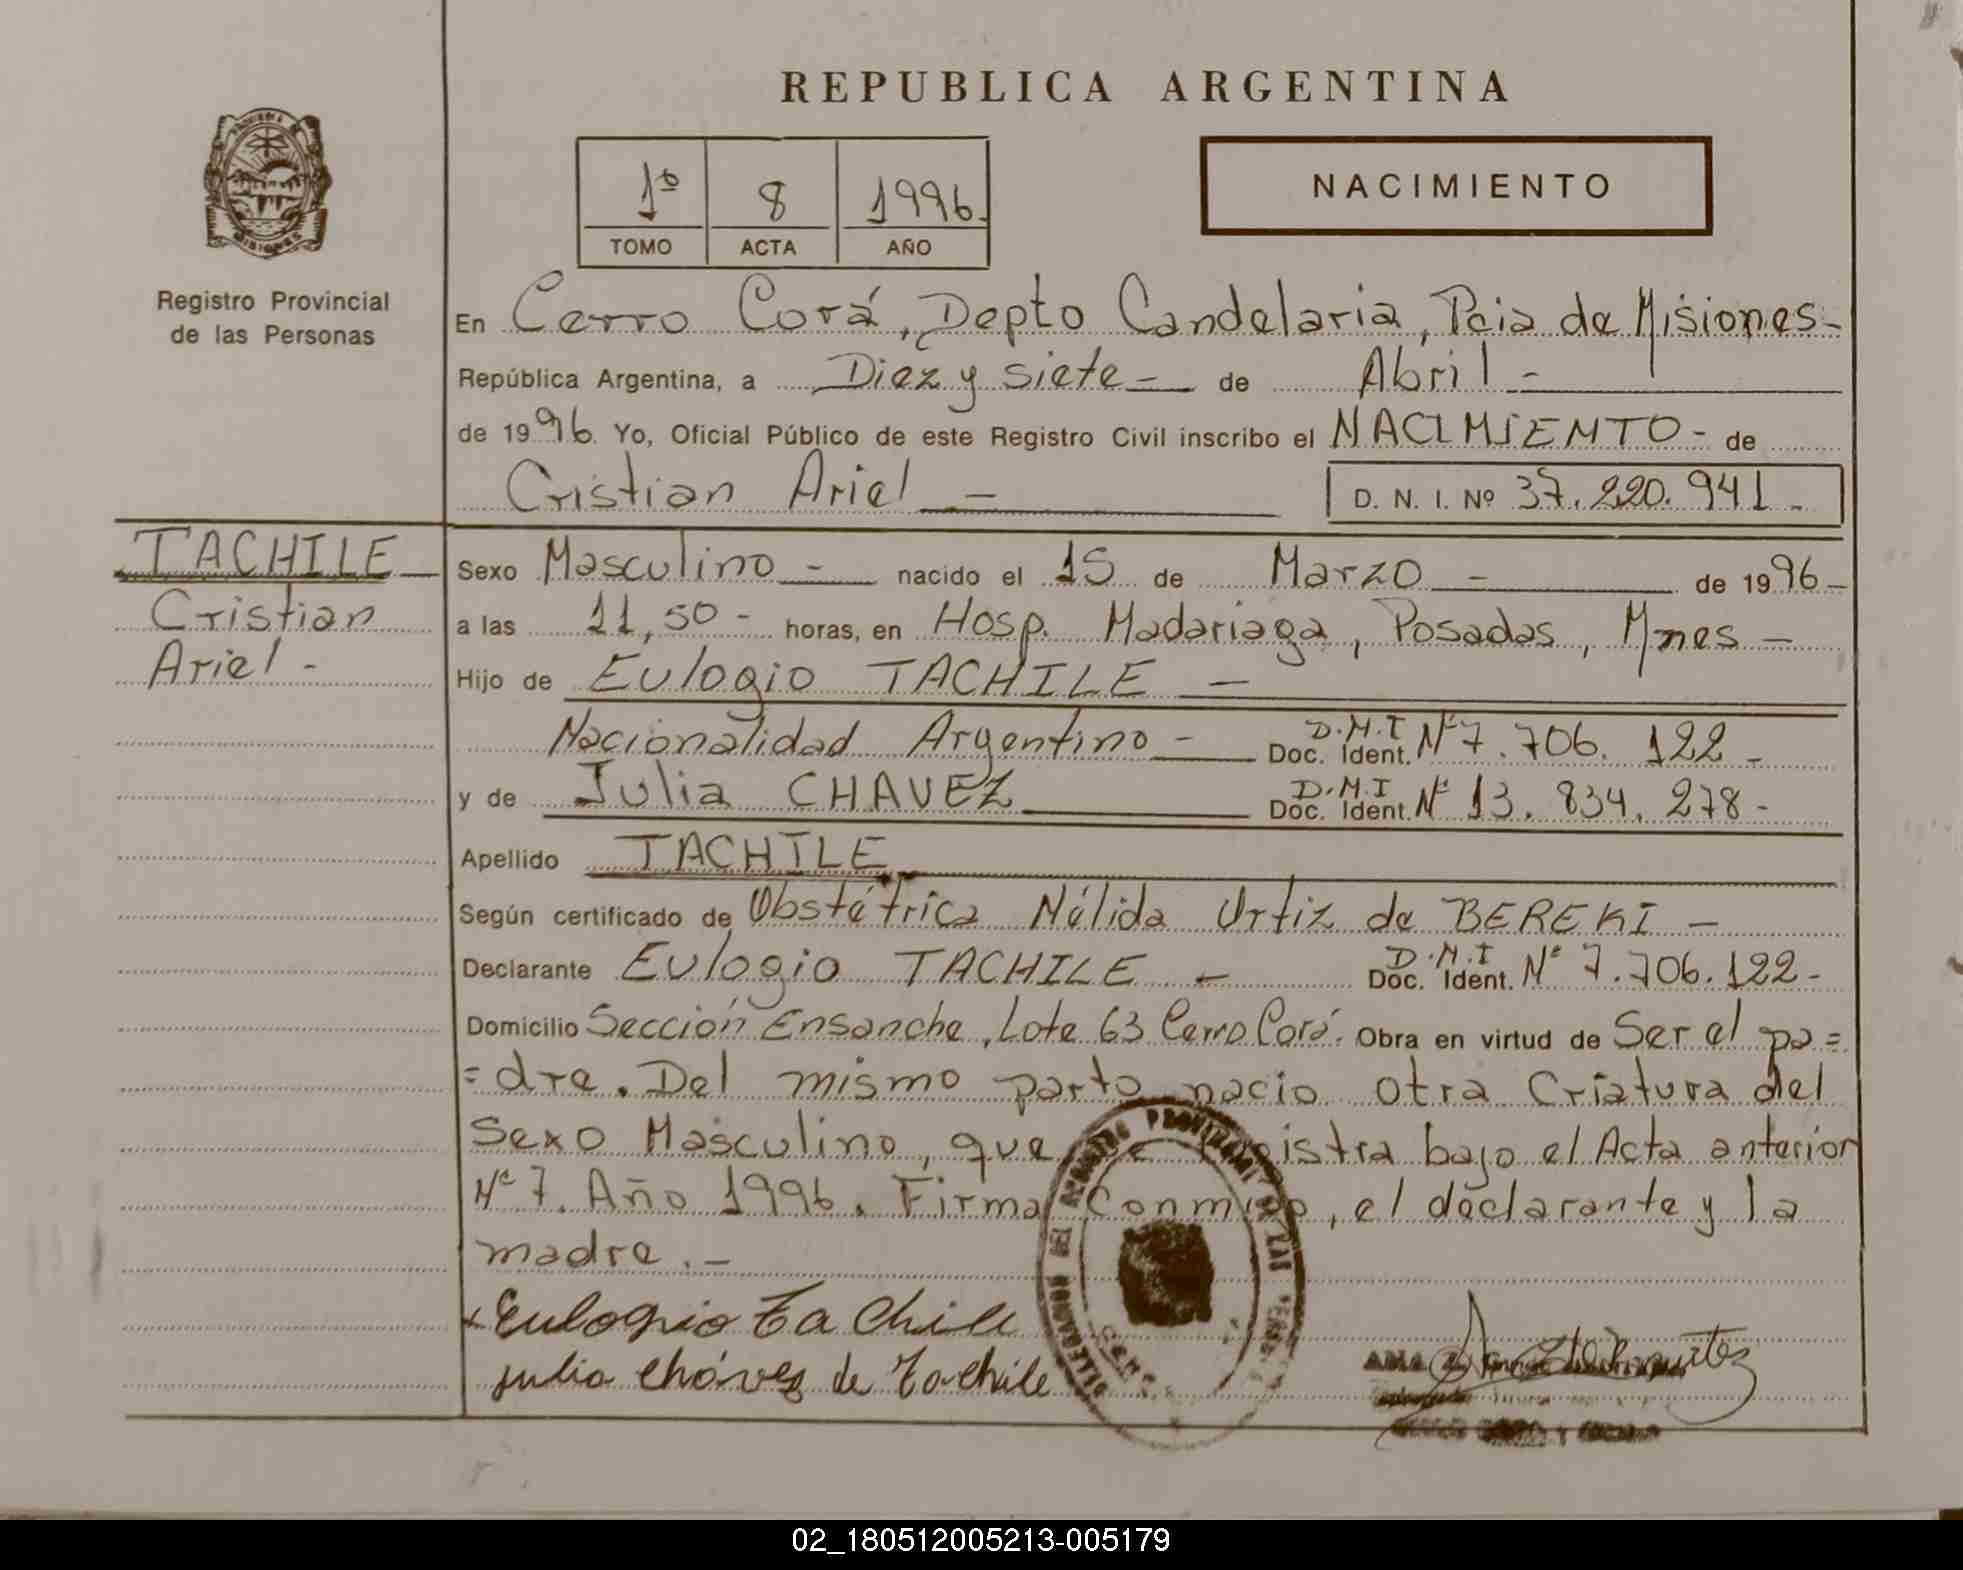 REPUBLICA ARGENTINA
PROVINCIA DE
MISIONES
Registro Provincial
de las Personas
1º 8 1996.
TOMO ACTA AÑO
NACIMIENTO
En Cerro Corá, Depto Candelaria, Pcia de Misiones-
República Argentina, a Diez y siete - de Abril -
de 1996. Yo, Oficial Público de este Registro Civil inscribo el NACIMIENTO - de
Cristian Ariel - D. N. I. Nº 37.220.941.-
TACHILE
Cristian
Ariel -
Sexo Masculino - nacido el 15 de Marzo - de 1996-
a las 11,50 - horas, en Hosp. Madariaga, Posadas, Mnes -
Hijo de Eulogio TACHILE -
Nacionalidad Argentino - D.N.I Doc. Ident. Nº 7.706.122 -
y de Julia CHAVEZ D.N.I Doc. Ident. Nº 13.834.278-
Apellido TACHILE
Según certificado de Obstétrica Nélida Urtiz de BEREKI -
Declarante Eulogio TACHILE - D.N.I Doc. Ident. Nº 7.706.122-
Domicilio Sección Ensanche, Lote 63 Cerro Corá. Obra en virtud de Ser el pa=
=dre. Del mismo parto nacio otra Criatura del
Sexo Masculino, que se registra bajo el Acta anterior
Nº 7. Año 1996. Firma Conmigo, el declarante y la
madre.-
Eulogio Tachile
Julia Cháves de Tachile
DELEGACION DEL REGISTRO PROVINCIAL DE LAS PERSONAS
02_180512005213-005179